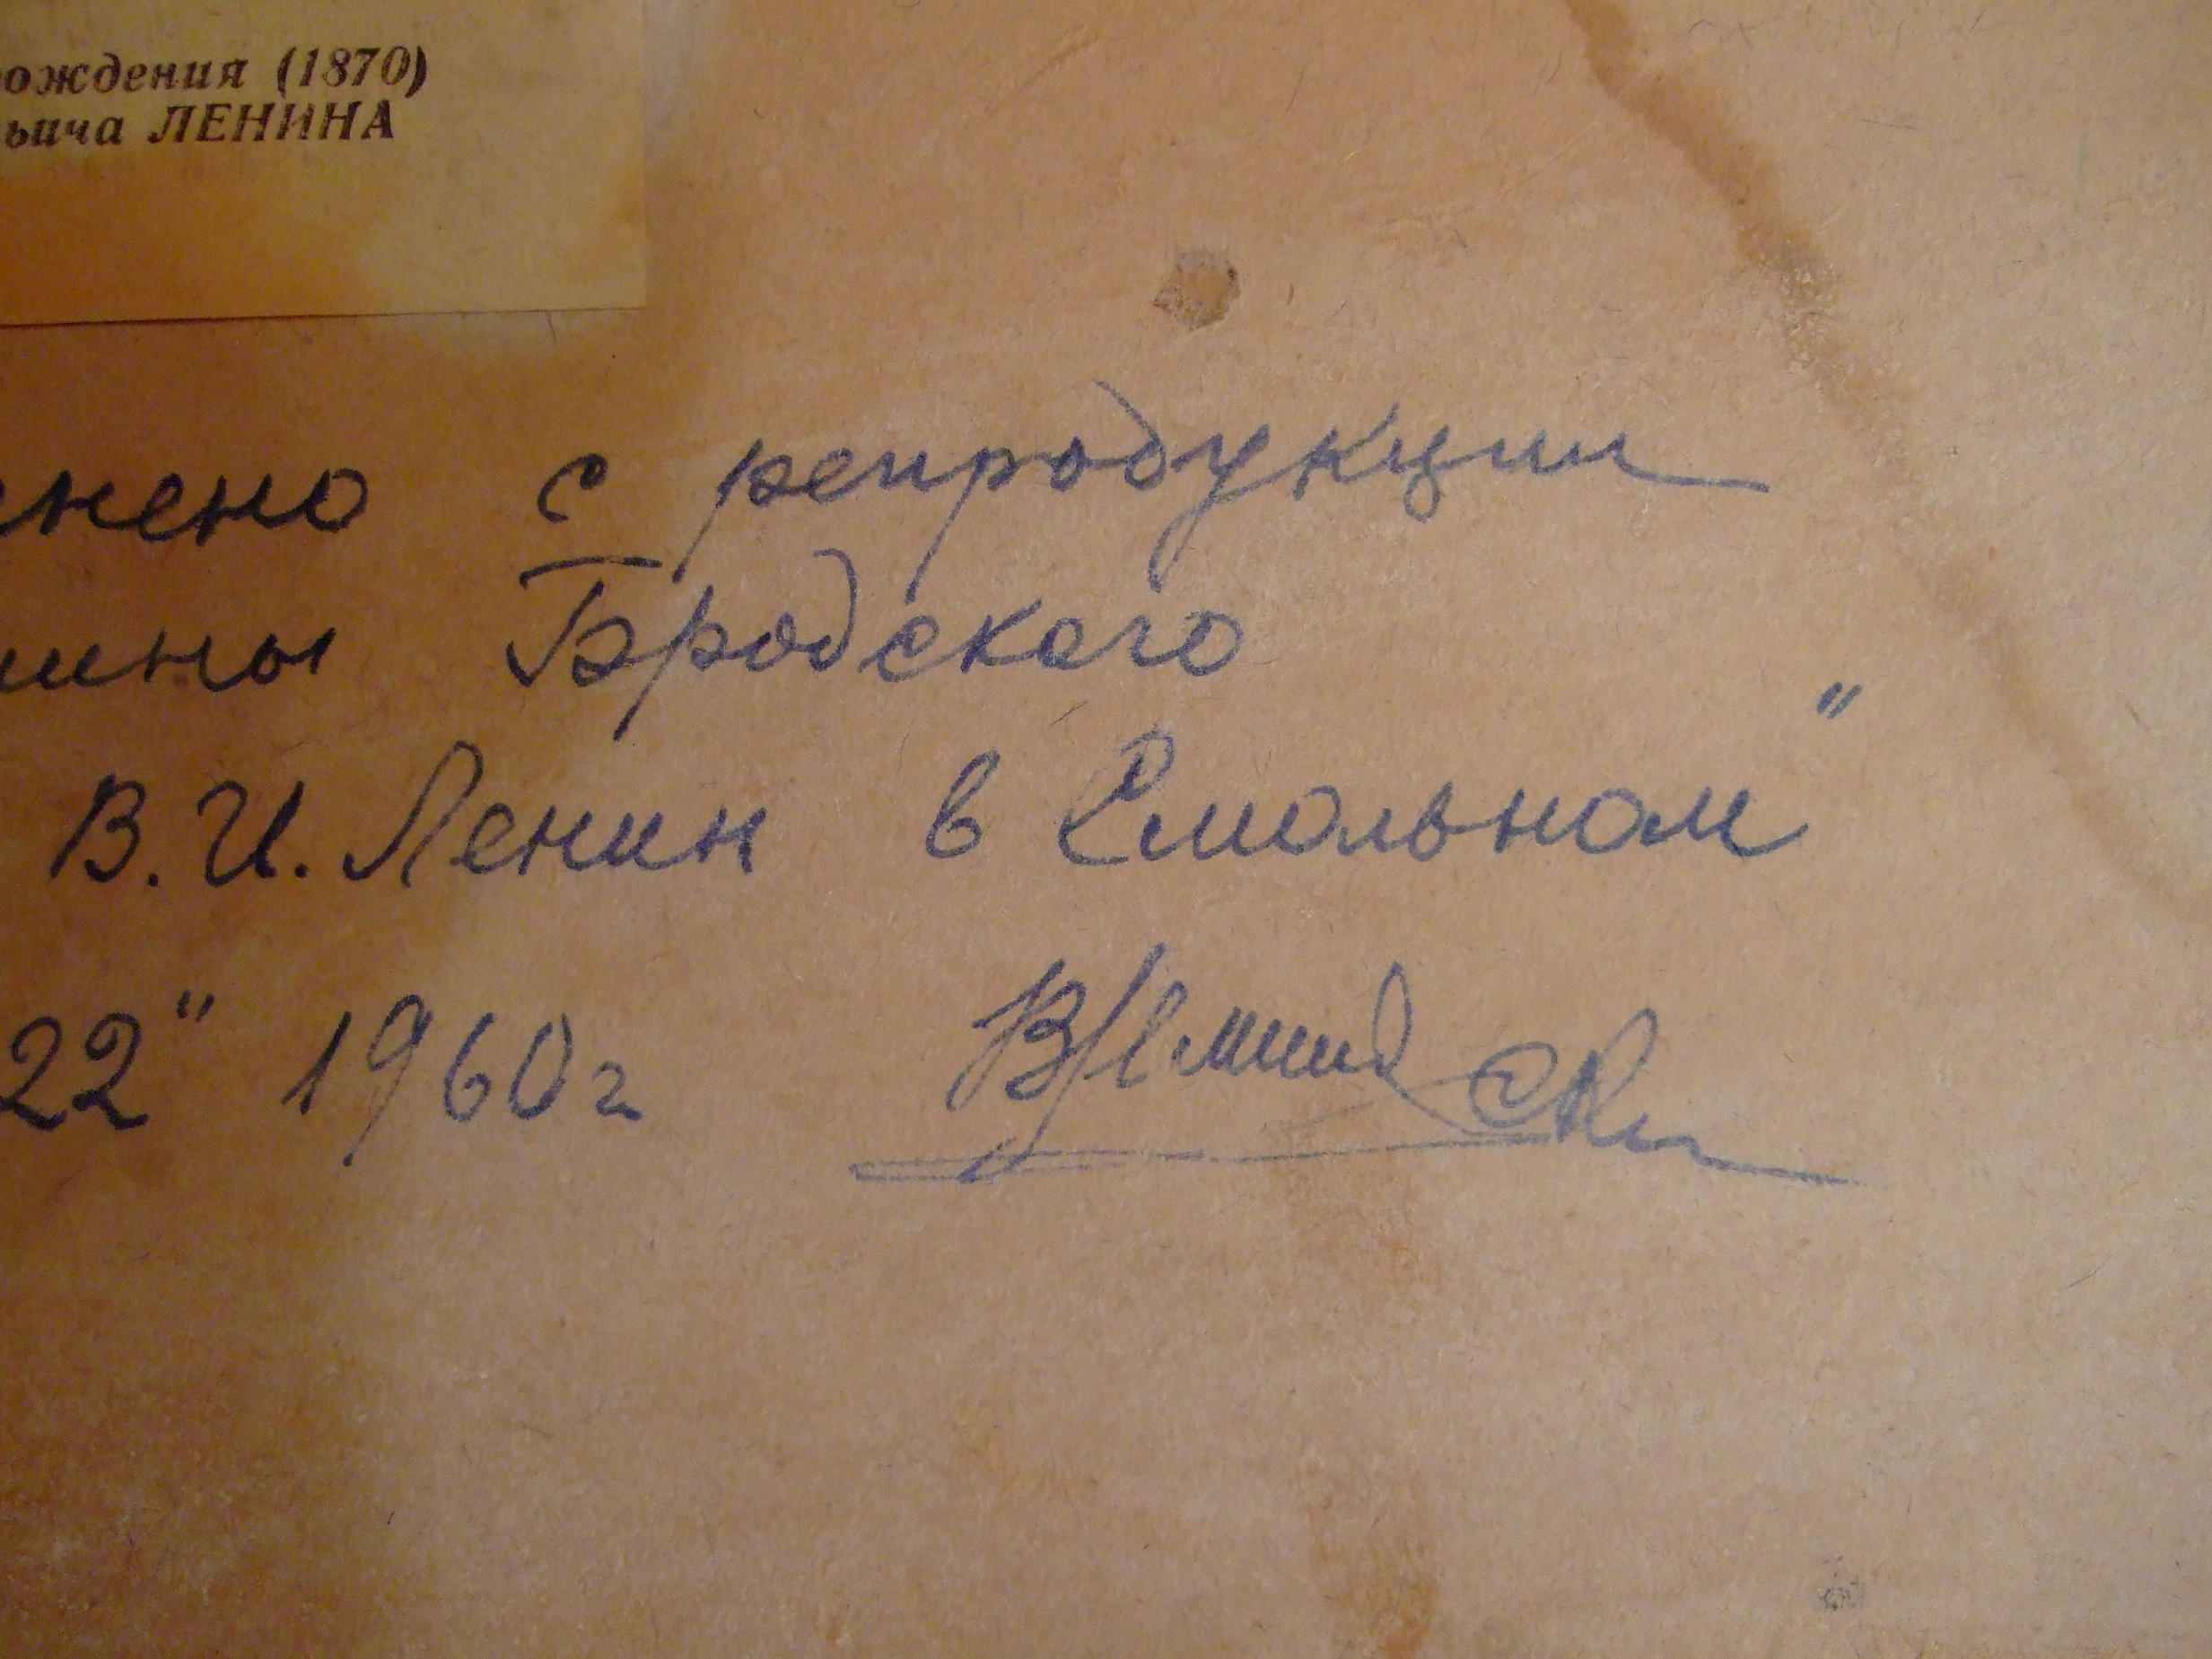 ождения (1870)
ьича ЛЕНИНА
нено с репродукции
ины Бродского
В.И. Ленин в Смольном"
22" 1960г